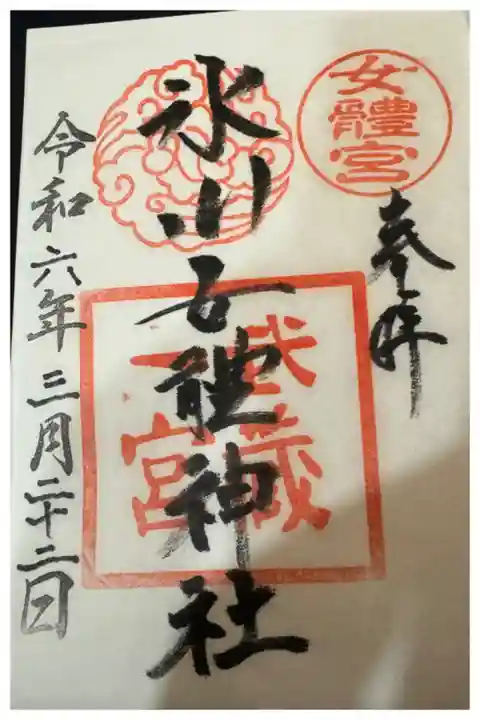 女體宮
参拝
氷川女體神社
武蔵
一宮
令和六年三月二十二日